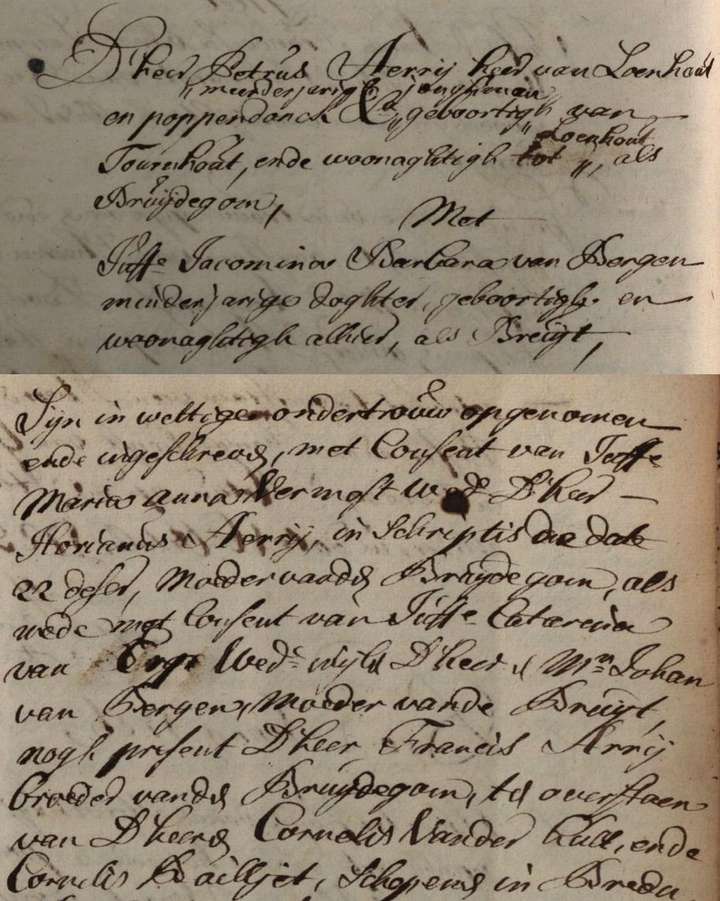 D'heer Petrus Aerrij heer van Loenhout
„minderjarigh jonghman
en poppendonck &a „geboortigh van
Loenhout
Tournhout, ende woonaghtigh tot „, als
Bruijdegom,
Met
Juffe Jacomina Barbara van Bergen
minderjarige doghter, geboortigh en
woonaghtigh alhier, als Bruijt,
Sijn in wettige ondertrouw opgenomen
ende ingeschreven, met Consent van Juffe
Maria anna Vermost Wede D'heer
Florianus Aerrij, in Schriptis de dato
22 deser, Moeder vanden Bruijdegom, als
mede met Consent van Juffe Catarina
van Wede wijlen D'heer Mr Johan
van Bergen, Moeder vande Bruijt,
nogh present D'heer Francis Arrij
broeder vanden Bruijdegom, ten overstaen
van D'heeren Cornelis Vander Hull, ende
Cornelis Bailljet, Schepens in Breda